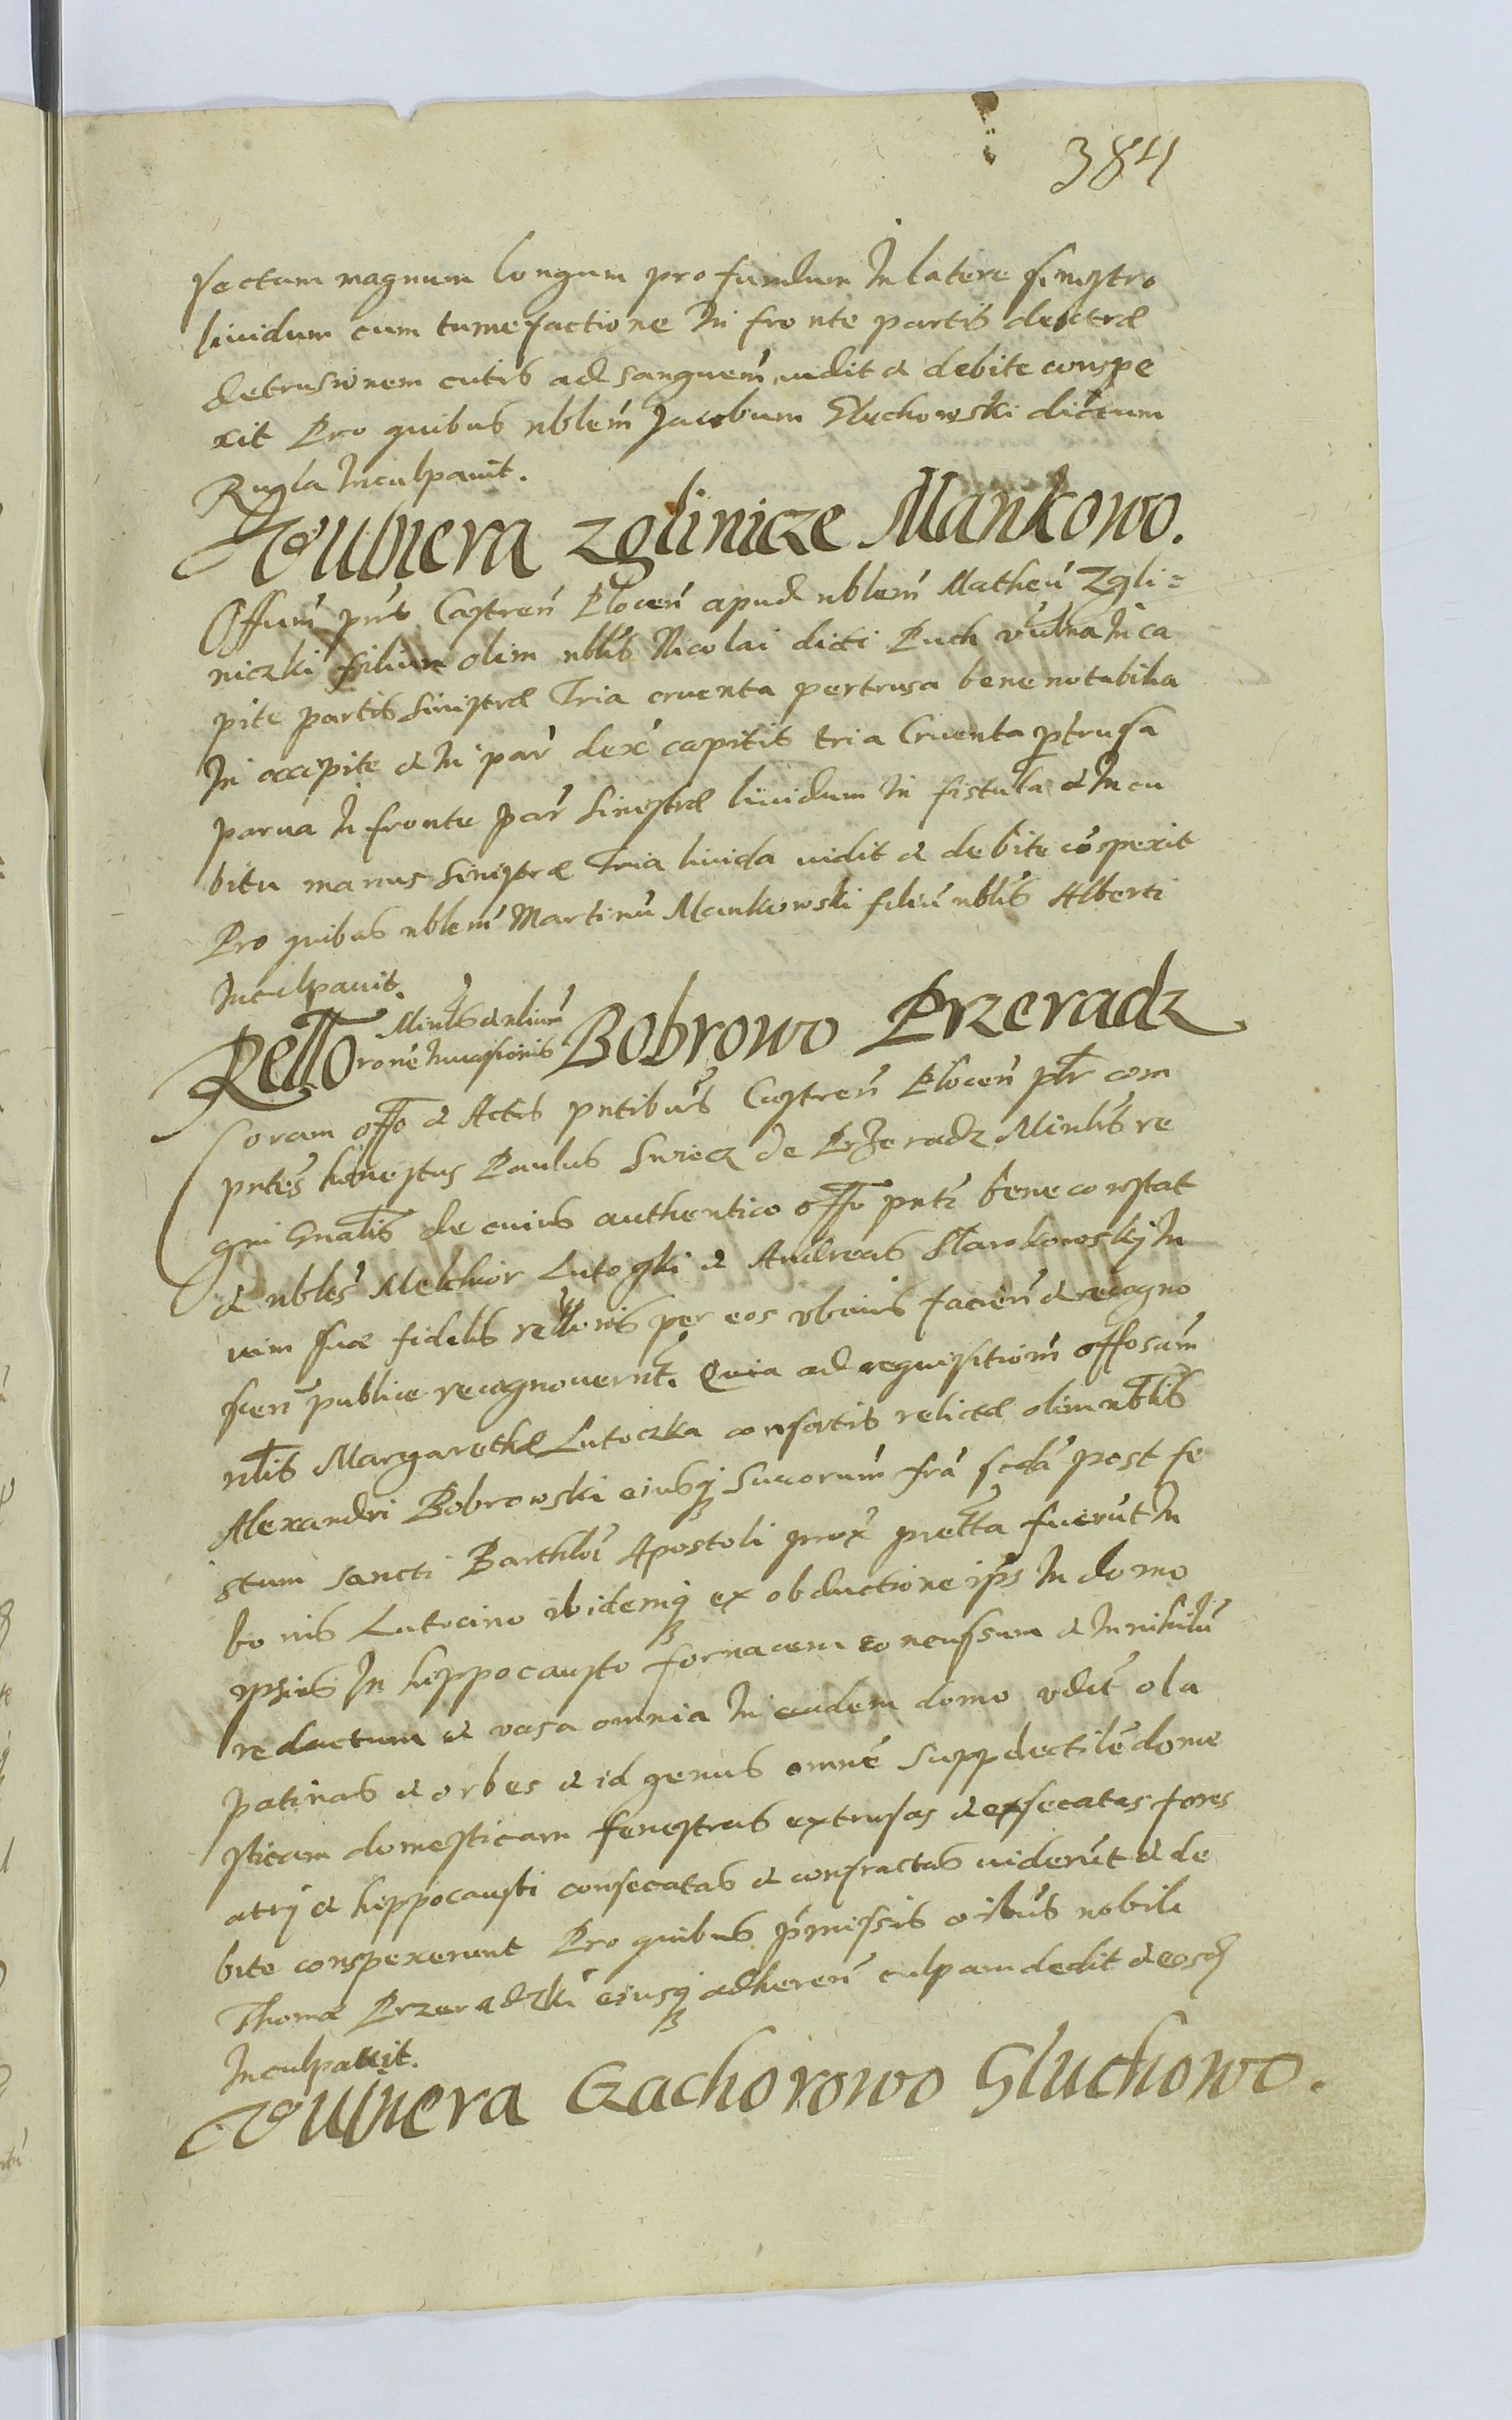 384
sectum magnum longum profundum In latere sinistro
liuidum cum tumefactione In fronte partis dextræ
detrusionem cutis ad sanguem vidit & debite conspe
xit Pro quibus nblem Jacobum Gluchowski dictum
Rugla Inculpauit.
Vulnera Zglinicze Mankowo.
Offum pns Castren Plocen apud nblem Matheu Zgli=
niczki filium olim nblis Nicolai dicti Puch vulna In ca
pite partis sinistræ Tria cruenta pertrusa bene notabilia
In occipite & In par dex capitis tria Cruenta ptrusa
parua In fronte par sinistræ liuidum In fistula & In cu
bitu manus sinistræ Tria liuida vidit & debite cospexit
Pro quibus nblem Martinu Mankowski filiu nblis Alberti
Inculpauit.
Rello Minlis & nlium rone Inuasionis Bobrowo Przeradz
Coram offo & Actis pntibus Castren Plocen plr com
pntes honestus Paulus Swiecz de Przeradz Minlis re
gni Gnalis de cuius authentico offo pnti bene constat
& nbles Melchior Lutoski & Andreas Slarokowskij In
uim suæ fidelis relionis per eos vbiuis facien & recogno
scen publice recognouernt. Quia ad requisitiom offosam
nlis Margarethæ Lutoczka consortis relictæ olim nblis
Alexandri Bobrowski eiusq Succorum fra scda post fe
stum sancti Barthloi Apostoli prox pretta fuerut In
bonis Lutocino ibidemq ex obductione ips In domo
ipsius In hippocausto fornacem concussum & In nihilu
redactum & vasa omnia In eadem domo vdlt ola
patinas & orbes & id genus omne suppdectile dome
sticam domesticam fenestras extrusas & exsecatas fores
atrij & hippocausti consecatas & confractas viderut & de
bite conspexerunt Pro quibus pmissis oibus nobili
Thomæ Przeradzki eiusq adheren culpam dedit & eosd
Inculpauit.
Vulnera Gachorowo Gluchowo.